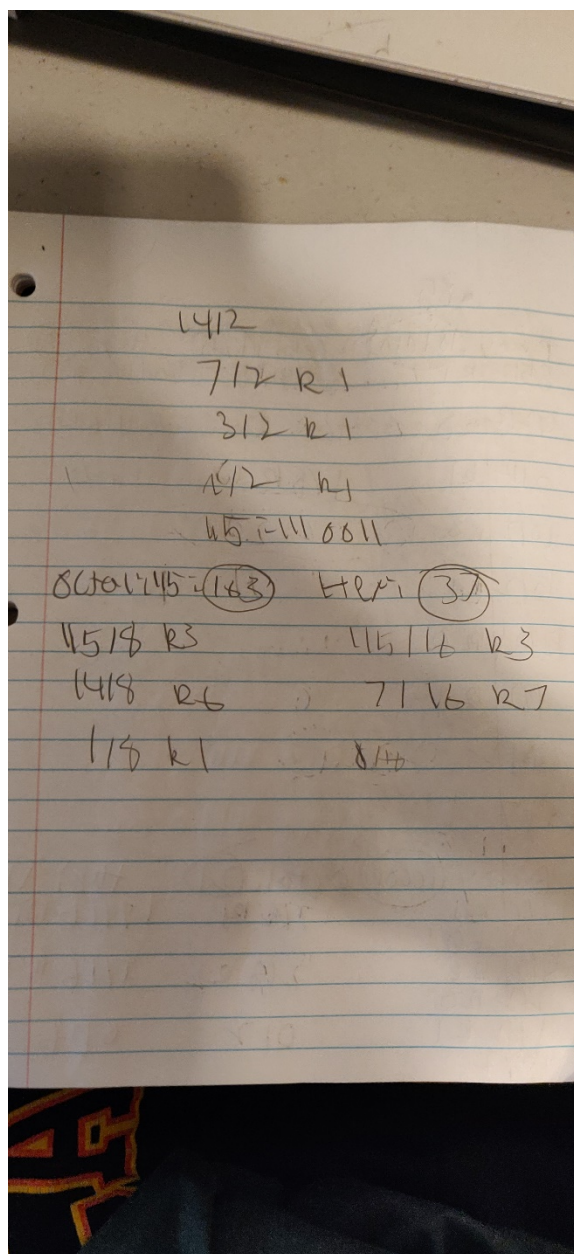 14/2
7/2 R1
3/2 R1
1/2 R1
115 = 1110011
Octal: 115 = 163 Hex: 37
115/8 R3 115/16 R3
14/8 R6 7/16 R7
1/8 R1